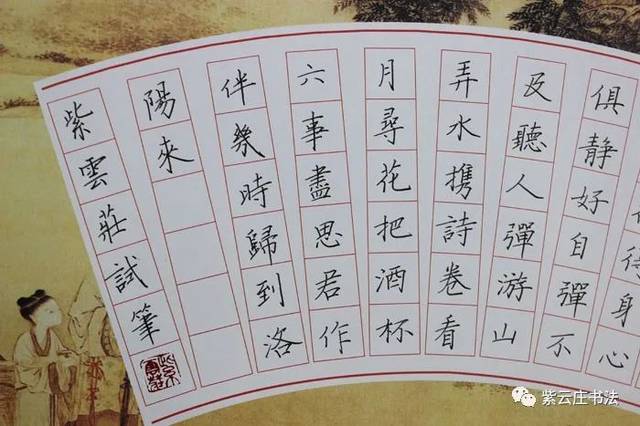 身心
俱靜好自彈不
及聽人彈游山
弄水携詩卷看
月尋花把酒杯
六事盡思君作
伴幾時歸到洛
陽來
紫雲莊試筆
紫云庄书法